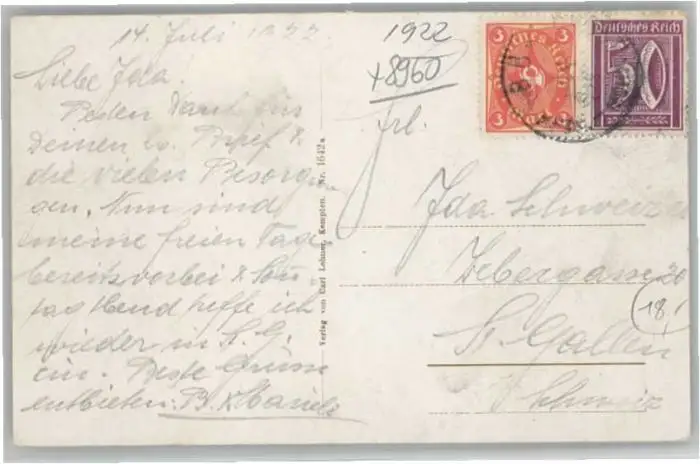 14. Juli 1922
Liebe Ida.
Besten Dank für
Deinen lb. Brief &
die vielen Besorgun-
gen. Nun sind
meine freien Tage
bereits vorbei & Sonn
tag Abend treffe ich
wieder in St. G.
ein. Beste Grüsse
entbieten: B. &
Verlag von Carl Lehner, Kempten. Nr. 1642a
1922
+8960
3
3
3
3
Deutsches Reich
Deutsches Reich
50
Frl.
Ida Schweizer
Webergasse 20
18!
St. Gallen
Schweiz